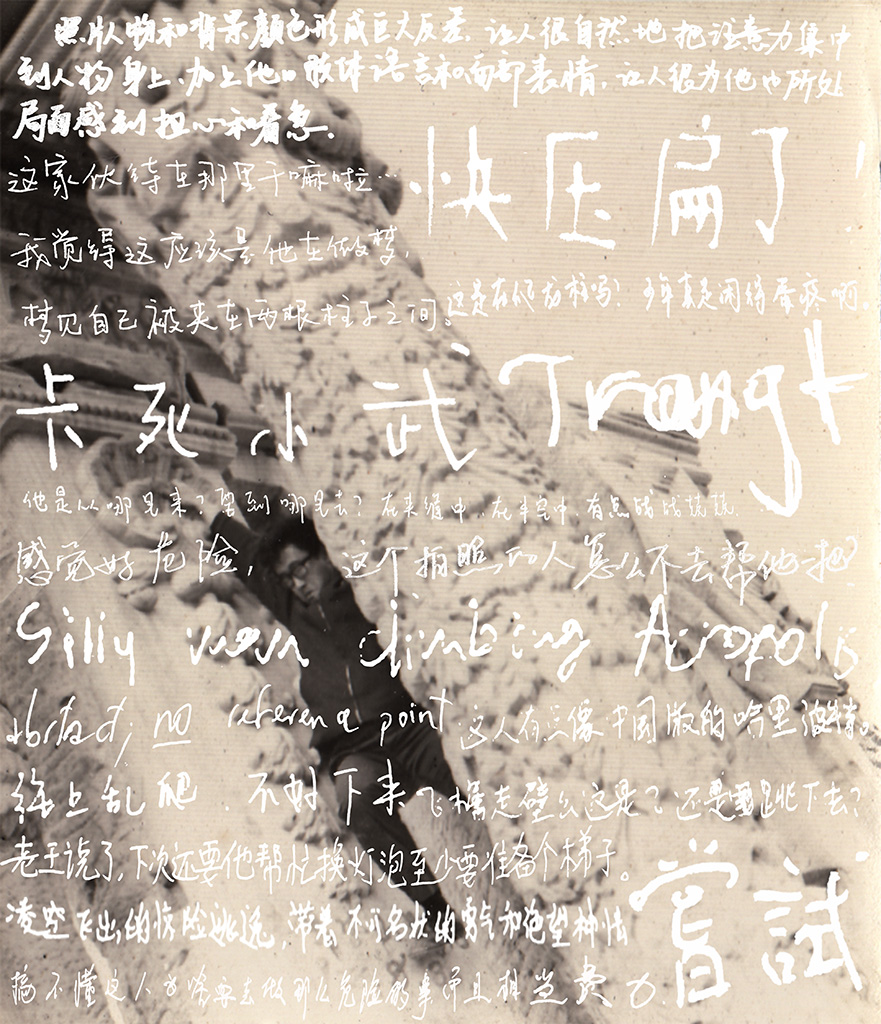 照片人物和背景顏色形成巨大反差，让人很自然地把注意力集中
到人物身上，加上他的肢体语言和面部表情，让人很为他的所处
局面感到担心和着急.
快压扁了！
这家伙待在那里干嘛啦…
我觉得这应该是他在做梦，
梦见自己被夹在两根柱子之间。
这是在爬龙柱吗？少年真是闲得蛋疼啊。
卡死小武
他是从哪里来？要到哪里去？在夹缝中，在半空中，有点战战兢兢.
感觉好危险，这个拍照的人怎么不去帮他一把？
Silly man climbing Acropolis
abstract; no reference point
这人有点像中国版的哈里波特。
往上乱爬，不好下来
飞檐走壁么这是？还是要跳下去？
老王说了，下次还要他帮忙换灯泡至少要准备个梯子。
凌空飞出的惊险逃逸，带着不可名状的勇气和绝望神情
嘗試
搞不懂这人为啥要去做那么危险的事而且相当费力.